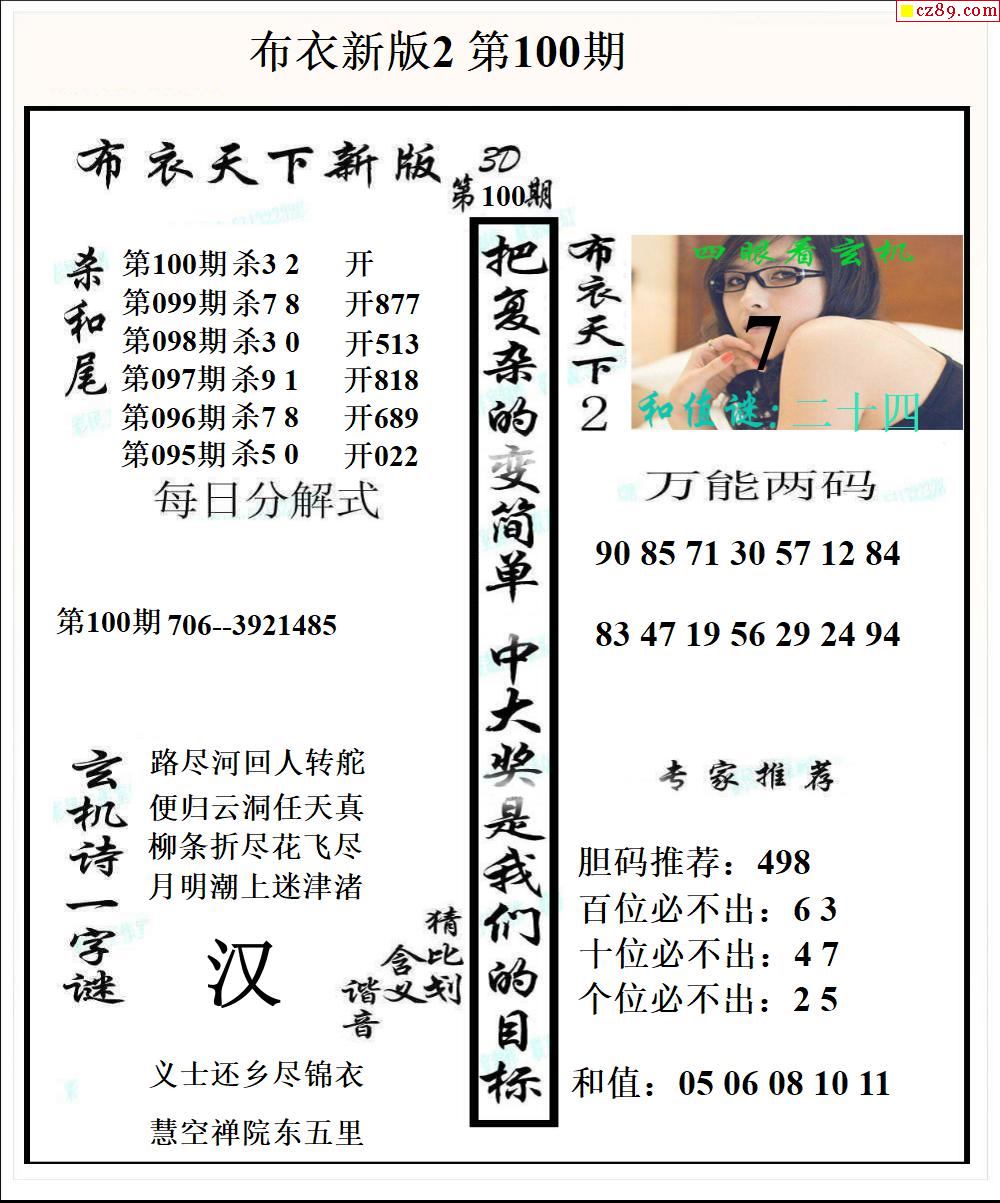 cz89.com
布衣新版2 第100期
布衣天下新版 3D
第100期
杀和尾
第100期 杀3 2 开
第099期 杀7 8 开877
第098期 杀3 0 开513
第097期 杀9 1 开818
第096期 杀7 8 开689
第095期 杀5 0 开022
每日分解式
第100期 706--3921485
玄机诗
路尽河回人转舵
便归云洞任天真
柳条折尽花飞尽
月明潮上迷津渚
一字谜
汉
猜比划
含义
谐音
义士还乡尽锦衣
慧空禅院东五里
把复杂的变简单 中大奖是我们的目标
布衣天下2
四眼看玄机
7
和值谜:二十四
万能两码
90 85 71 30 57 12 84
83 47 19 56 29 24 94
专家推荐
胆码推荐：498
百位必不出：6 3
十位必不出：4 7
个位必不出：2 5
和值：05 06 08 10 11